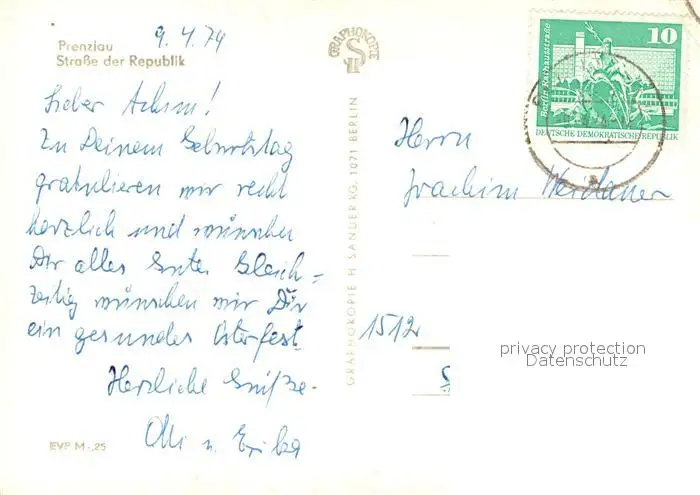 9.4.79
Prenzlau
Straße der Republik
Lieber Achim!
Zu Deinem Geburtstag
gratulieren wir recht
herzlich und wünschen
Dir alles Gute. Gleich=
zeitig wünschen wir Dir
ein gesundes Osterfest.
Herzliche Grüße.
Olli u. Erika
EVP M -,25
GRAPHOKOPIE
H S
GRAPHOKOPIE H SANDER KG, 1071 BERLIN
10
Berlin, Rathausstraße
DEUTSCHE DEMOKRATISCHE REPUBLIK
Herrn
Joachim Weidauer
1512
privacy protection
Datenschutz